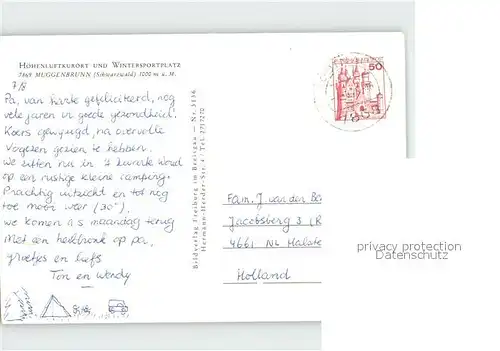 HÖHENLUFTKURORT UND WINTERSPORTPLATZ
7869 MUGGENBRUNN (Schwarzwald) 1000 m ü. M.
7/8
Pa, van harte gefeliciteerd, nog
vele jaren in goede gezondheid.
Koers gewijzigd, na overvolle
Vogezen gezien te hebben.
We zitten nu in 't zwarte Woud
op een rustige kleine camping.
Prachtig uitzicht en tot nog
toe mooi weer (30°).
we komen a.s maandag terug
Met een heildronk op pa,
groetjes en liefs
Ton en Wendy
Bildverlag Freiburg im Breisgau — Nr. 3136
Hermann-Herder-Str. 4 · Tel. 273720
50
Fam. J van der
Jacobsberg 3
4661 NL Halste
Holland
privacy protection
Datenschutz